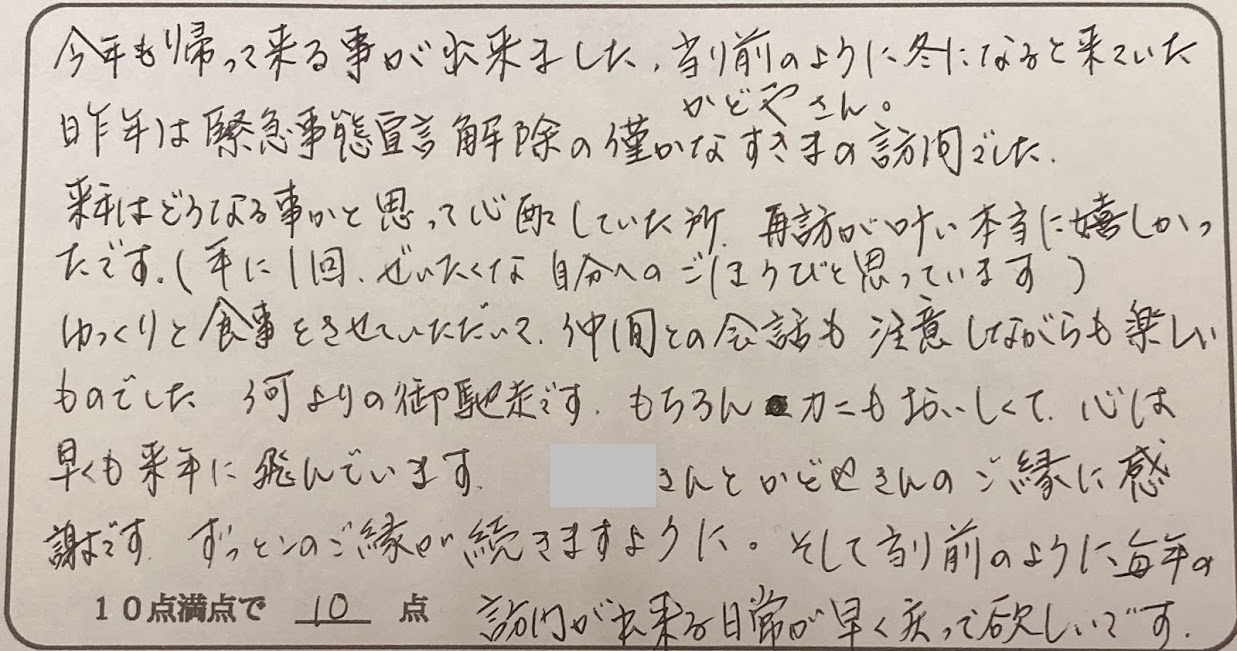 今年も帰って来る事が出来ました。当り前のように冬になると来ていた
かどやさん。
昨年は緊急事態宣言解除の僅かなすきまの訪問でした。
来年はどうなる事かと思って心配していた所、再訪が叶い本当に嬉しかっ
たです。(年に1回、ぜいたくな自分へのごほうびと思っています)
ゆっくりと食事をさせていただいて、仲間との会話も注意しながらも楽しい
ものでした 何よりの御馳走です。もちろんカニもおいしくて、心は
早くも来年に飛んでいます。 さんとかどやさんのご縁に感
謝です。ずっとこのご縁が続きますように。そして当り前のように毎年の
訪問が出来る日常が早く戻って欲しいです。
10点満点で 10 点